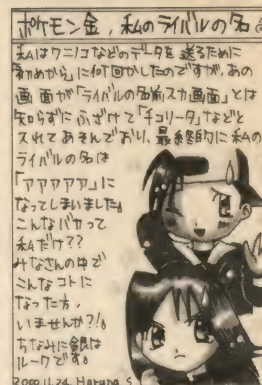 ポケモン金，私のライバルの名
私はワニノコなどのデータを送るために
初めから」に何回かしたのですが、あの
画面が「ライバルの名前入力画面」とは
知らずにふざけて「チコリータ」などと
入れてあそんでおり、最終的に私の
ライバルの名は
「アアアアア」に
なってしまいました。
こんなバカって
私だけ??
みなさんの中で
こんなコトに
なった方、
いませんか?!
ちなみに銀は
ルークです。
2000.11.24 Haruna S